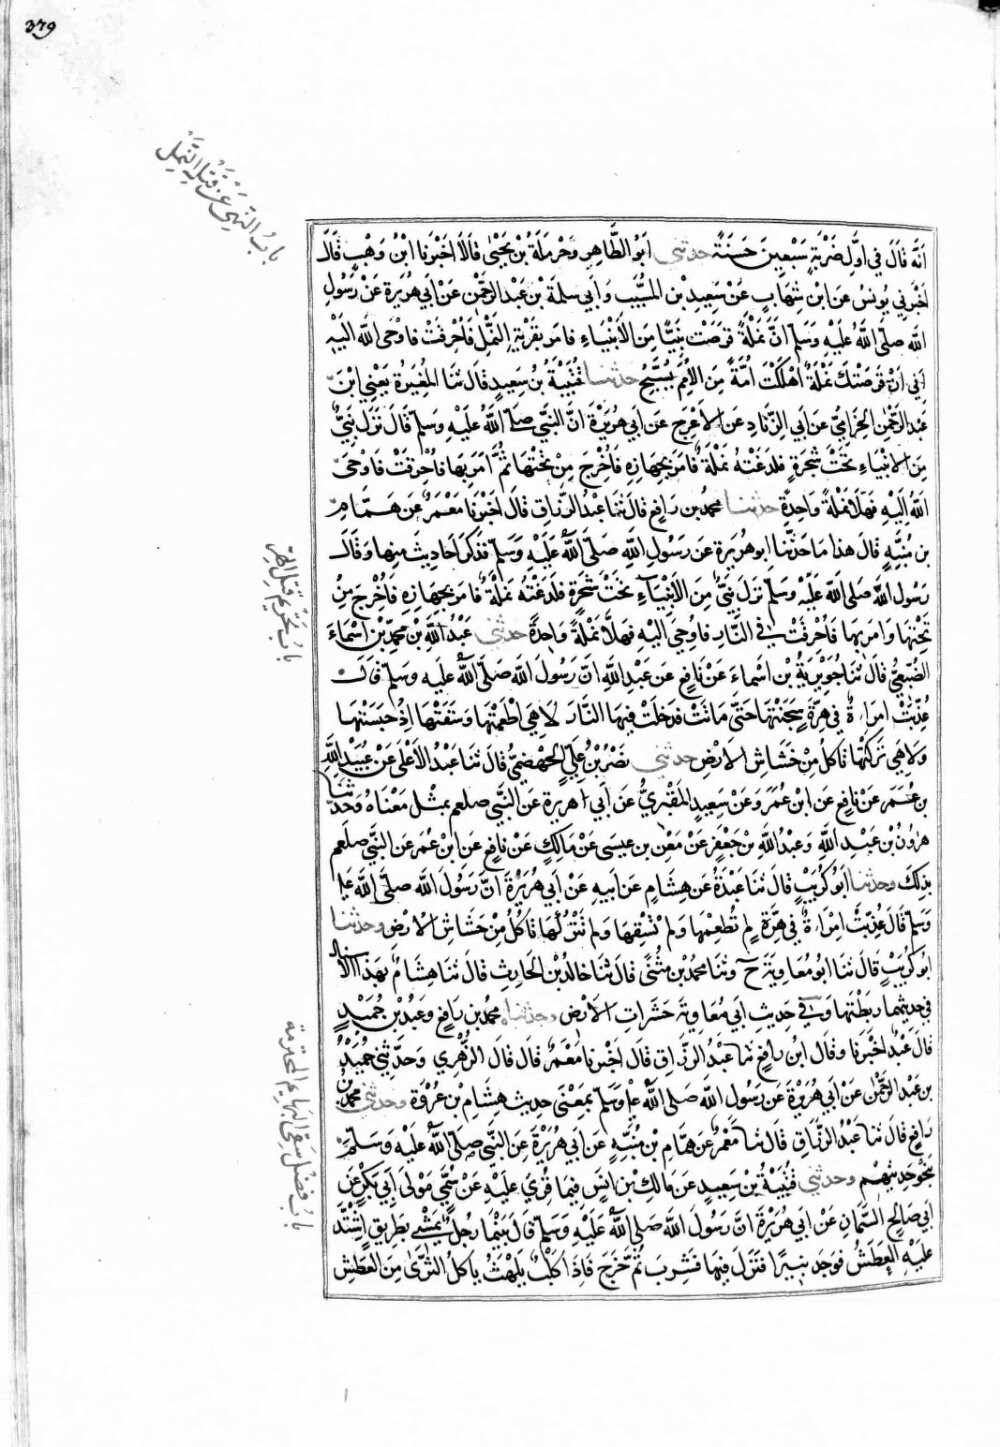 379
باب النهي عن قتل النمل
انه قال في اول ضربة سبعين حسنة حدثني ابو الطاهر وحرملة بن يحيى قالا اخبرنا ابن وهب قال
اخبرني يونس عن ابن شهاب عن سعيد بن المسيب وابي سلمة بن عبد الرحمن عن ابي هريرة عن رسول
الله صلى الله عليه وسلم ان نملة قرصت نبيا من الانبياء فامر بقرية النمل فاحرقت فاوحى الله اليه
افي ان قرصتك نملة اهلكت امة من الامم يسبح حدثنا قتيبة بن سعيد قال ثنا المغيرة يعني ابن
عبد الرحمن الحزامي عن ابي الزناد عن الاعرج عن ابي هريرة ان النبي صلى الله عليه وسلم قال نزل نبي
من الانبياء تحت شجرة فلدغته نملة فامر بجهازه فاخرج من تحتها ثم امر بها فاحرقت فاوحى
الله اليه فهلا نملة واحدة حدثنا محمد بن رافع قال ثنا عبد الرزاق قال اخبرنا معمر عن همام
بن منبه قال هذا ما حدثنا ابو هريرة عن رسول الله صلى الله عليه وسلم فذكر احاديث منها وقال
رسول الله صلى الله عليه وسلم نزل نبي من الانبياء تحت شجرة فلدغته نملة فامر بجهازه فاخرج من
تحتها وامر بها فاحرقت في النار فاوحي اليه فهلا نملة واحدة حدثني عبد الله بن محمد بن اسماء
باب تحريم قتل الهر
الضبعي قال ثنا جويرية بن اسماء عن نافع عن عبد الله ان رسول الله صلى الله عليه وسلم قال
عذبت امراة في هرة سجنتها حتى ماتت فدخلت فيها النار لا هي اطعمتها وسقتها اذ حبستها
ولا هي تركتها تاكل من خشاش الارض حدثني نصر بن علي الجهضمي قال ثنا عبد الاعلى عن عبيد الله
بن عمر عن نافع عن ابن عمر وعن سعيد المقبري عن ابي هريرة عن النبي صلعم بمثل معناه وحدثنا
هرون بن عبد الله وعبد الله بن جعفر عن معن بن عيسى عن مالك عن نافع عن ابن عمر عن النبي صلعم
بذلك وحدثنا ابو كريب قال ثنا عبدة عن هشام عن ابيه عن ابي هريرة ان رسول الله صلى الله عليه
وسلم قال عذبت امراة في هرة لم تطعمها ولم تسقها ولم تتركها تاكل من خشاش الارض وحدثنا
ابو كريب قال ثنا ابو معاوية ح وثنا محمد بن مثنى قال ثنا خالد بن الحارث قال ثنا هشام بهذا الاسناد
في حديثهما ربطتها وفي حديث ابي معاوية حشرات الارض وحدثنا محمد بن رافع وعبد بن حميد
قال عبد اخبرنا وقال ابن رافع ثنا عبد الرزاق قال اخبرنا معمر قال قال الزهري وحدثني حميد
بن عبد الرحمن عن ابي هريرة عن رسول الله صلى الله عليه وسلم بمعنى حديث هشام بن عروة وحدثني محمد بن
رافع قال ثنا عبد الرزاق قال ثنا معمر عن همام بن منبه عن ابي هريرة عن النبي صلى الله عليه وسلم
نحو حديثهم وحدثني قتيبة بن سعيد عن مالك بن انس فيما قرئ عليه عن سمي مولى ابي بكر عن
باب فضل سقي البهايم المحترمة
ابي صالح السمان عن ابي هريرة ان رسول الله صلى الله عليه وسلم قال بينما رجل يمشي بطريق اشتد
عليه العطش فوجد بيرا فنزل فيها فشرب ثم خرج فاذا كلب يلهث ياكل الثرى من العطش